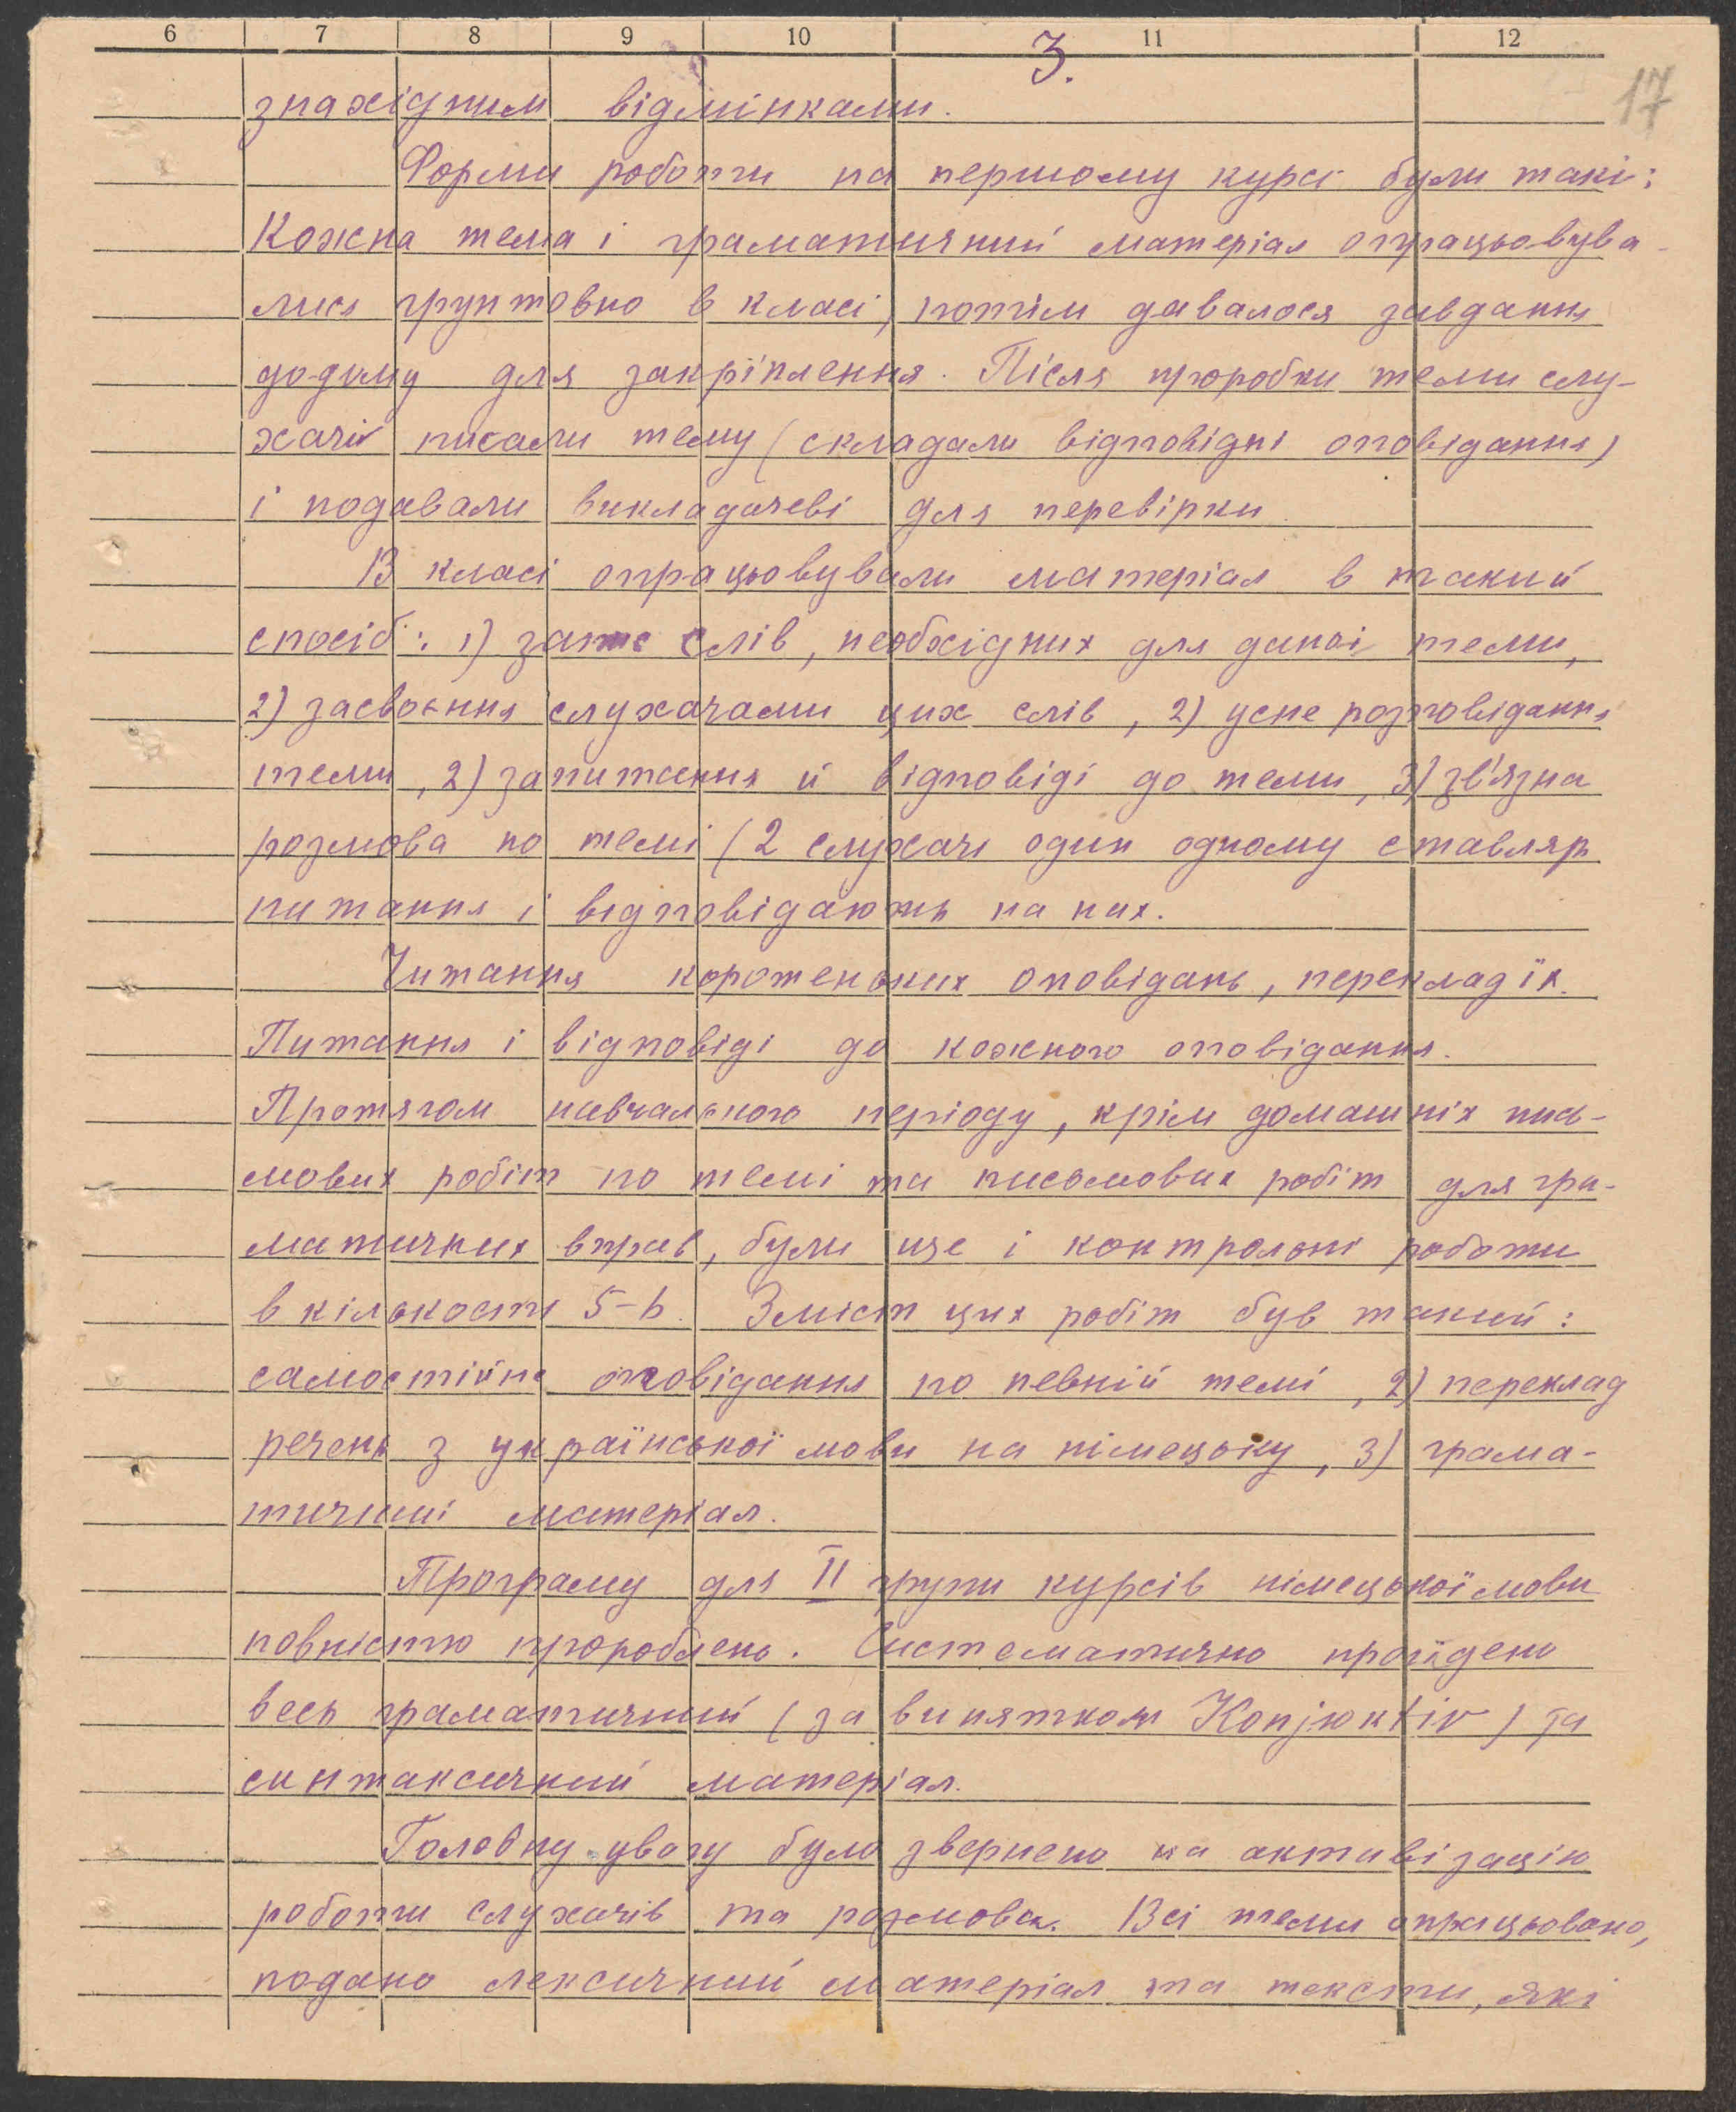 6 7 8 9 10 11 12
3.
17
знахідним відмінками.
Форми роботи на першому курсі були такі:
Кожна тема і граматичний матеріал опрацьовува-
лись грунтовно в класі, потім давалося завдання
додому для закріплення. Після проробки теми слу-
хачі писали тему (складали відповідні оповідання)
і подавали викладачеві для перевірки
В класі опрацьовували матеріал в такий
спосіб: 1) запис слів, необхідних для даної теми,
2) засвоєння слухачами цих слів, 2) усне розповідання
теми, 2) запитання й відповіді до теми, 3) зв'язна
розмова по темі (2 слухачі один одному ставлять
питання і відповідають на них.
Читання коротеньких оповідань, переклад їх.
Питання і відповіді до кожного оповідання.
Протягом навчального періоду, крім домашніх пись-
мових робіт по темі та письмових робіт для гра-
матичних вправ, були ще і контрольні роботи
в кількости 5-6. Зміст цих робіт був такий:
самостійне оповідання по певній темі, 2) переклад
речень з української мови на німецьку, 3) грама-
тичний матеріал.
Програму для II групи курсів німецької мови
повністю пророблено. Систематично пройдено
весь граматичний (за винятком Konjюktiv) та
синтаксичний матеріал.
Головну увагу було звернено на активізацію
роботи слухачів та розмова. Всі теми опрацьовано,
подано лексичний матеріал та тексти, які